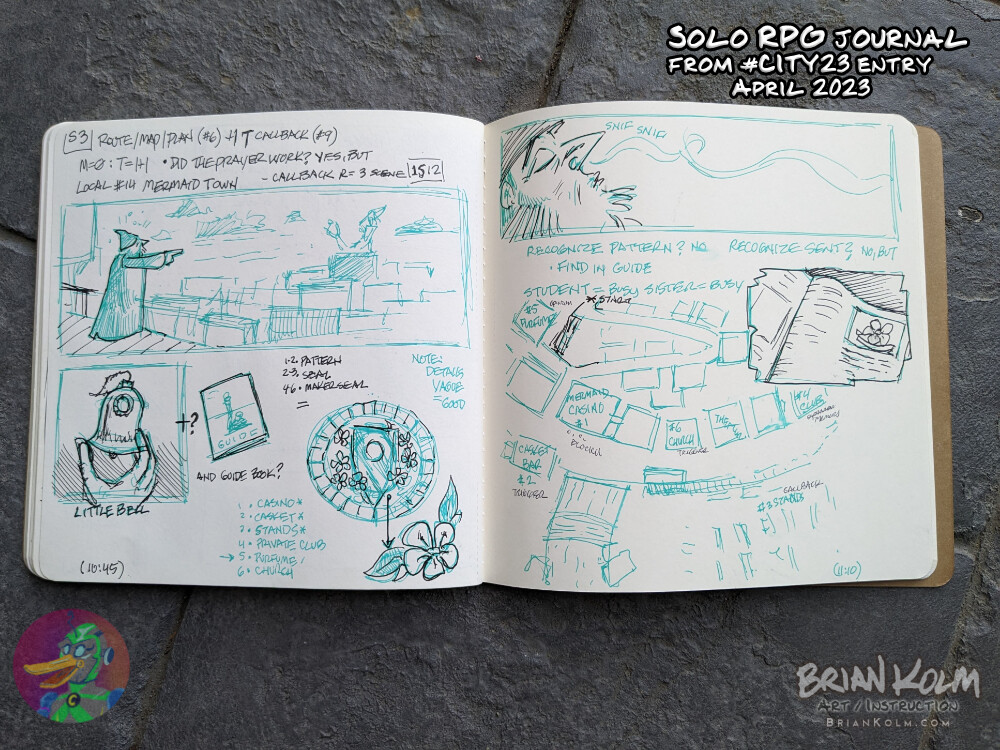 SOLO RPG JOURNAL
FROM #CITY23 ENTRY
APRIL 2023
S3 ROUTE/MAP/PLAN (#6) CALLBACK (#9)
DID THE PRAYER WORK? YES, BUT
LOCAL #14 MERMAID TOWN - CALLBACK R= 3 SCENE
1-2. PATTERN
2-3. SEAL
4-6 • MAKER SEAL
=
NOTE:
DETAILS
VAGUE
= GOOD
+?
GUIDE
AND GUIDE BOOK?
LITTLE BELL
1 • CASINO *
2 • CASKET *
3 • STANDS *
4 • PRIVATE CLUB
→ 5 • PURFUME /
6 • CHURCH
(10:45)
SNIF SNIF
RECOGNIZE PATTERN? NO RECOGNIZE SENT? NO, BUT
• FIND IN GUIDE
STUDENT = BUSY SISTER = BUSY
#5
PURFUME
* START
MERMAID
CASINO
#1
#6
CHURCH
TRIGGER
THE
#4
CLUB
CASKET
BAR
#2
TRIGGER
CALLBACK
#3 STANDS
(11:10)
C
BRIAN KOLM
ART / INSTRUCTION
BRIANKOLM.COM